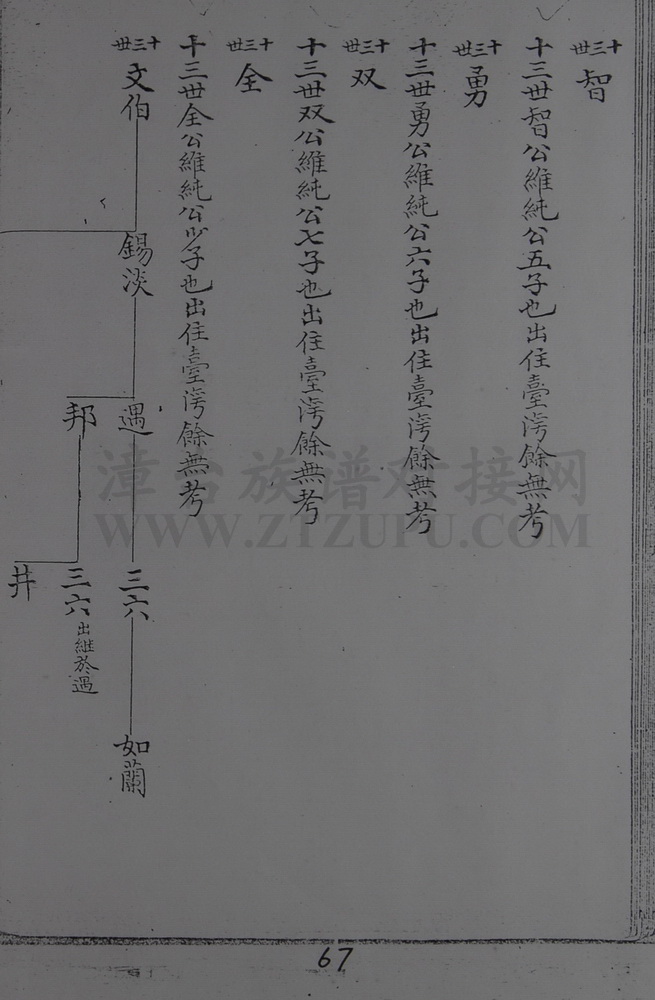 十三世 智
十三世智公維純公五子也出住臺湾餘無考
十三世 勇
十三世勇公維純公六子也出住臺湾餘無考
十三世 双
十三世双公維純公七子也出住臺湾餘無考
十三世 全
十三世全公維純公少子也出住臺湾餘無考
十三世 文伯
錫淡
遇
三六
如蘭
邦
三六 出継於遇
井
67
漳台族谱对接网
WWW.ZTZUPU.COM